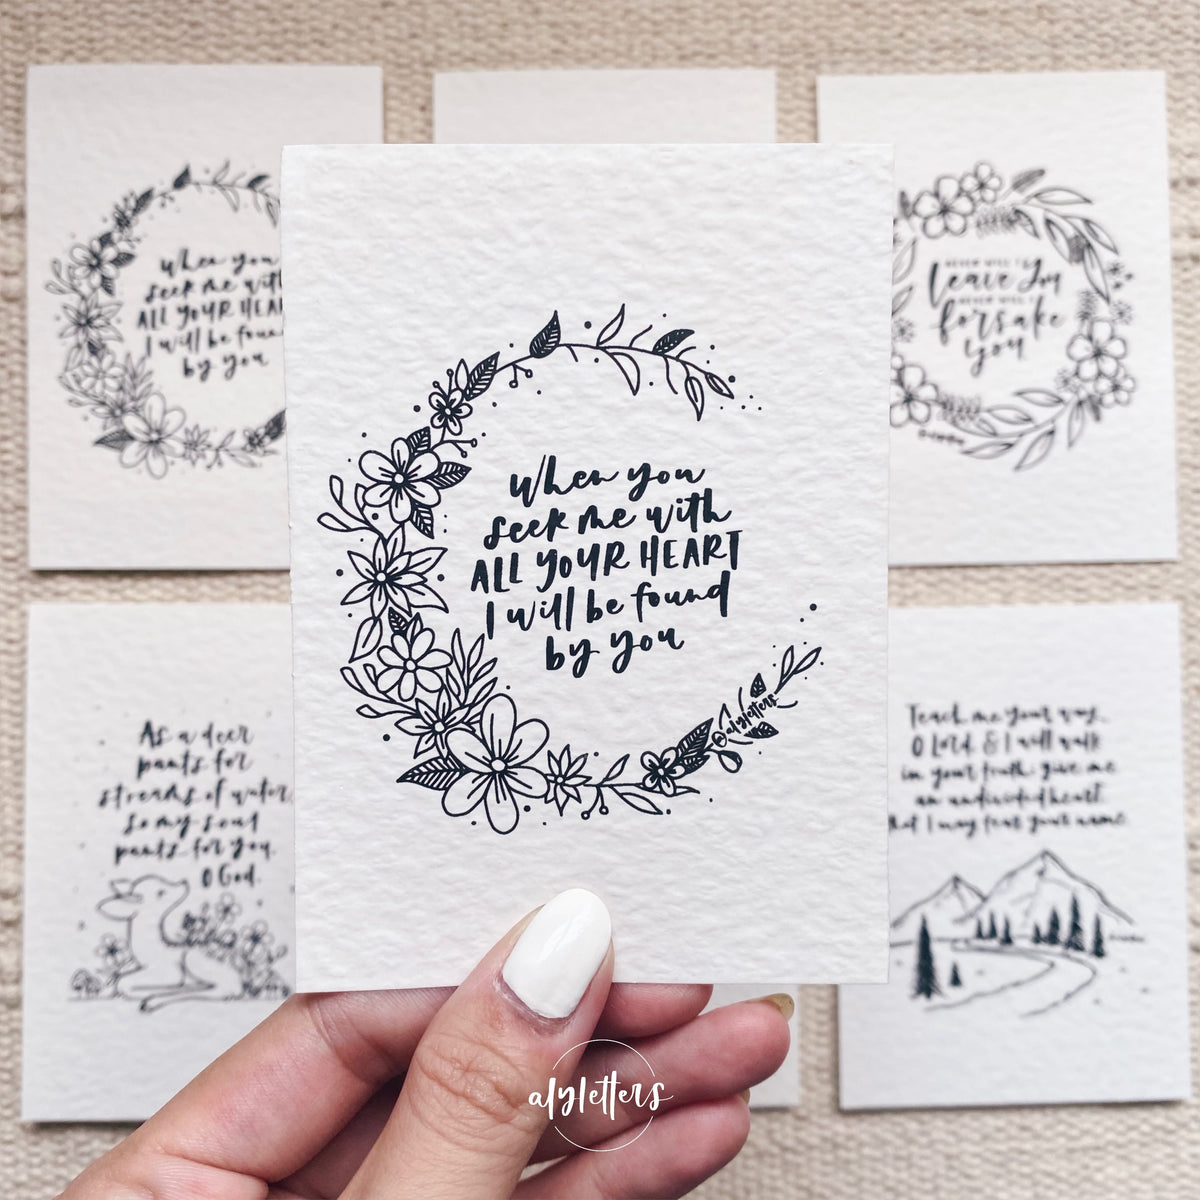 When you
seek me with
ALL YOUR HEART
I will be found
by you
@alyletters
When you
seek me with
ALL YOUR HEA
I will be foun
by you
NEVER WILL I
leave you
NEVER WILL I
forsake
you
As a deer
pants for
streams of water,
so my soul
pants for you,
O God.
Teach me your way,
O Lord, & I will walk
in your truth; give me
an undivided heart,
that I may fear your name.
alyletters